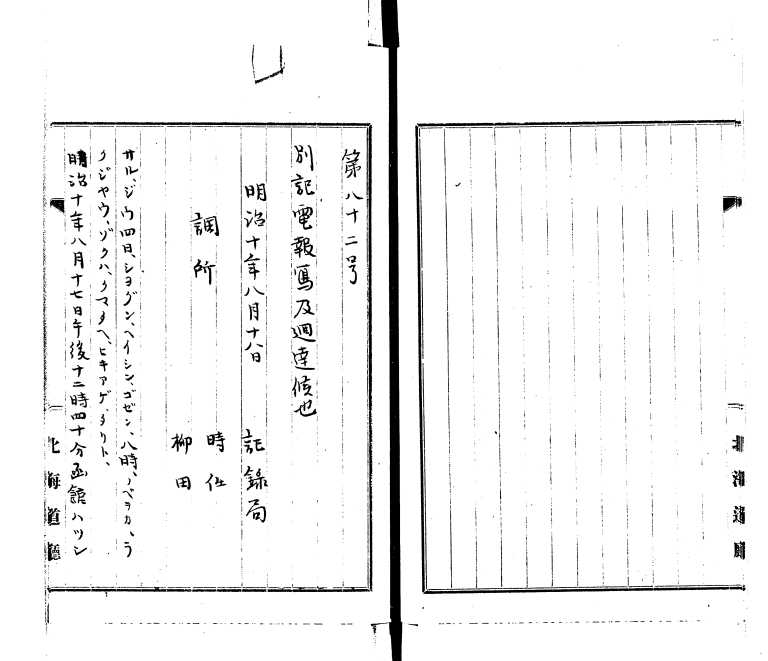 第八十二号
別記電報寫及廻達候也
明治十年八月十八日 記録局
調所 時任
柳田
サル、ジウ四日、シヨグン、ヘイシン、ゴゼン、八時、ノベヲカ、ラ
クジヤウ、ゾクハ、クマタヘ、ヒキアゲ、タリト、
明治十年八月十七日午後十二時四十分函館ハツシ
北海道廳
北海道廳